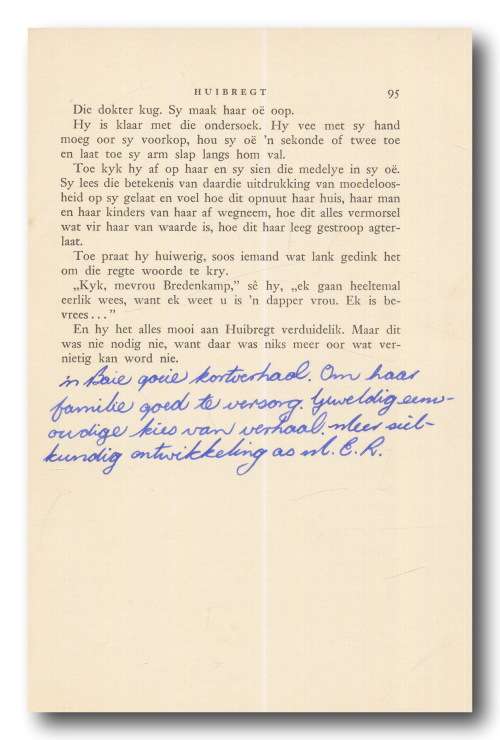 HUIBREGT 95
Die dokter kug. Sy maak haar oë oop.
Hy is klaar met die ondersoek. Hy vee met sy hand
moeg oor sy voorkop, hou sy oë 'n sekonde of twee toe
en laat toe sy arm slap langs hom val.
Toe kyk hy af op haar en sy sien die medelye in sy oë.
Sy lees die betekenis van daardie uitdrukking van moedeloos-
heid op sy gelaat en voel hoe dit opnuut haar huis, haar man
en haar kinders van haar af wegneem, hoe dit alles vermorsel
wat vir haar van waarde is, hoe dit haar leeg gestroop agter-
laat.
Toe praat hy huiwerig, soos iemand wat lank gedink het
om die regte woorde te kry.
„Kyk, mevrou Bredenkamp,” sê hy, „ek gaan heeltemal
eerlik wees, want ek weet u is 'n dapper vrou. Ek is be-
vrees . . .”
En hy het alles mooi aan Huibregt verduidelik. Maar dit
was nie nodig nie, want daar was niks meer oor wat ver-
nietig kan word nie.
'n Baie goeie kortverhaal. Om haar
familie goed te versorg. Geweldig eenv-
oudige kies van verhaal. Meer siel-
kundig ontwikkeling as M.E.R.